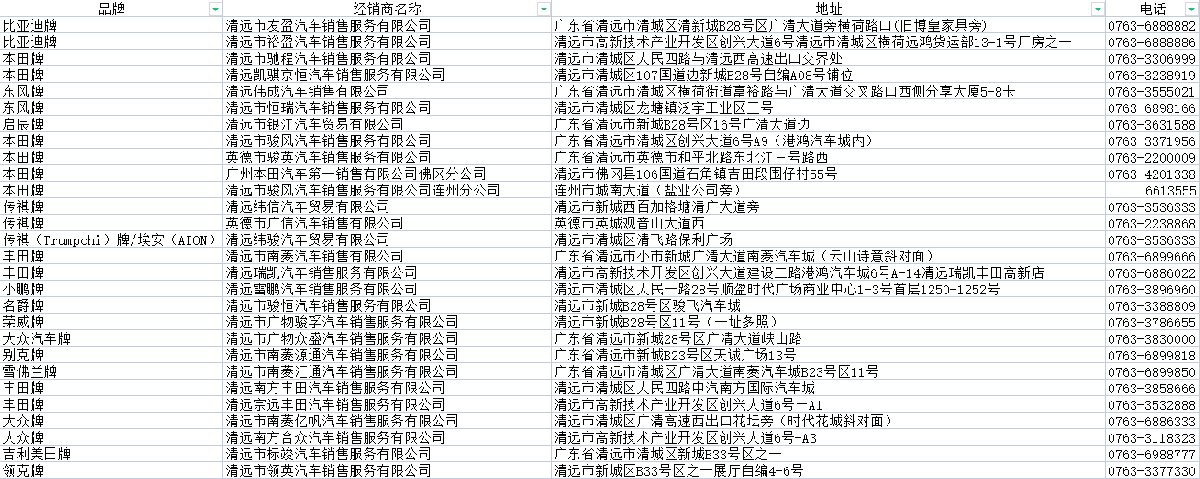 品牌 经销商名称 地址 电话
比亚迪牌 清远市友盈汽车销售服务有限公司 广东省清远市清城区清新城B28号区广清大道旁横荷路口(旧博皇家具旁) 0763-6888882
比亚迪牌 清远市裕盈汽车销售服务有限公司 清远市高新技术产业开发区创兴大道6号清远市清城区横荷远鸿货运部13-1号厂房之一 0763-6888886
本田牌 清远市驰程汽车销售服务有限公司 清远市清城区人民四路与清远西高速出口交界处 0763-3306999
本田牌 清远凯骐京恒汽车销售服务有限公司 清远市清城区107国道边新城E28号自编A08号铺位 0763-3238919
东风牌 清远伟成汽车销售有限公司 广东省清远市清城区横荷街道豪裕路与广清大道交叉路口西侧分享大厦5-8卡 0763-3555021
东风牌 清远市恒瑞汽车销售服务有限公司 清远市清城区龙塘镇泛宇工业区二号 0763-6898166
启辰牌 清远市银江汽车贸易有限公司 广东省清远市新城B28号区16号广清大道边 0763-3631588
本田牌 清远市骏风汽车销售服务有限公司 广东省清远市清城区创兴大道6号A9（港鸿汽车城内） 0763-3371956
本田牌 英德市骏英汽车销售服务有限公司 广东省清远市英德市和平北路东北江一号路西 0763-2200009
本田牌 广州本田汽车第一销售有限公司佛冈分公司 清远市佛冈县106国道石角镇吉田段围仔村55号 0763-4201338
本田牌 清远市骏风汽车销售服务有限公司连州分公司 连州市城南大道（盐业公司旁） 6613555
传祺牌 清远纬信汽车贸易有限公司 清远市新城西百加格塘清广大道旁 0763-3536333
传祺牌 英德市广信汽车销售有限公司 英德市英城观音山大道西 0763-2238868
传祺（Trumpchi）牌/埃安（AION） 清远纬骏汽车贸易有限公司 清远市清城区清飞路保利广场 0763-3536333
丰田牌 清远市南菱汽车销售服务有限公司 广东省清远市小市新城广清大道南菱汽车城（云山诗意斜对面） 0763-6899666
丰田牌 清远瑞凯汽车销售服务有限公司 清远市高新技术开发区创兴大道建设二路港鸿汽车城6号A-14清远瑞凯丰田高新店 0763-6886022
小鹏牌 清远鹏汽车销售服务有限公司 清远市清城区人民一路28号顺盈时代广场商业中心1-3号首层1250-1252号 0763-3896960
名爵牌 清远市骏恒汽车销售服务有限公司 清远市新城B28号区骏飞汽车城 0763-3388809
荣威牌 清远市广物骏孚汽车销售服务有限公司 清远市新城B28号区11号（一址多照） 0763-3786655
大众汽车牌 清远市广物众盛汽车销售服务有限公司 广东省清远市新城28号区广清大道峡山路 0763-3830000
别克牌 清远市南菱源通汽车销售服务有限公司 广东省清远市新城B23号区天诚广场13号 0763-6899818
雪佛兰牌 清远市南菱汇通汽车销售服务有限公司 广东省清远市清城区广清大道南菱汽车城B23号区11号 0763-6899850
丰田牌 清远南方丰田汽车销售服务有限公司 清远市清城区人民四路中汽南方国际汽车城 0763-3858666
丰田牌 清远宗远丰田汽车销售服务有限公司 清远市高新技术产业开发区创兴大道6号-A1 0763-3532888
大众牌 清远市南菱亿帆汽车销售服务有限公司 清远市清城区广清高速西出口花坛旁（时代花城斜对面） 0763-6886333
大众牌 清远南方合众汽车销售服务有限公司 清远市高新技术产业开发区创兴大道6号-A3 0763-3118323
吉利美日牌 清远市标竣汽车销售服务有限公司 广东省清远市清城区新城B33号区之一 0763-6988777
领克牌 清远市领英汽车销售服务有限公司 清远市新城区B33号区之一展厅自编4-6号 0763-3377330